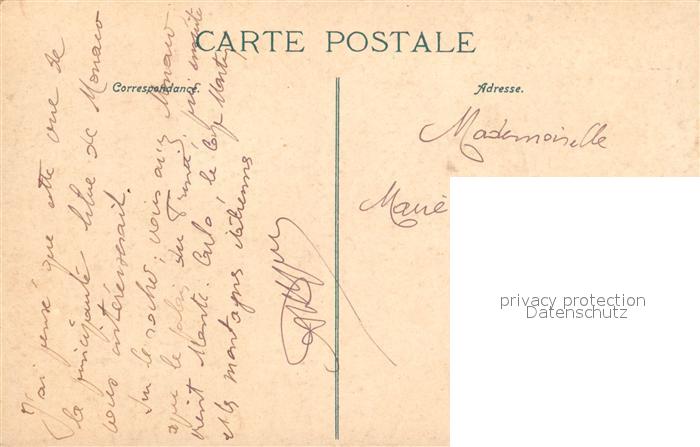 CARTE POSTALE
Correspondance.
Adresse.
J'ai pensé que cette vue de
la principauté libre de Monaco
vous intéresserait.
Sur le rocher, vous avez Monaco
que le palais du Prince, puis ensuite
vient Monte-Carlo, le Cap Martin
et les montagnes italiennes
Mademoiselle
Marie
privacy protection
Datenschutz